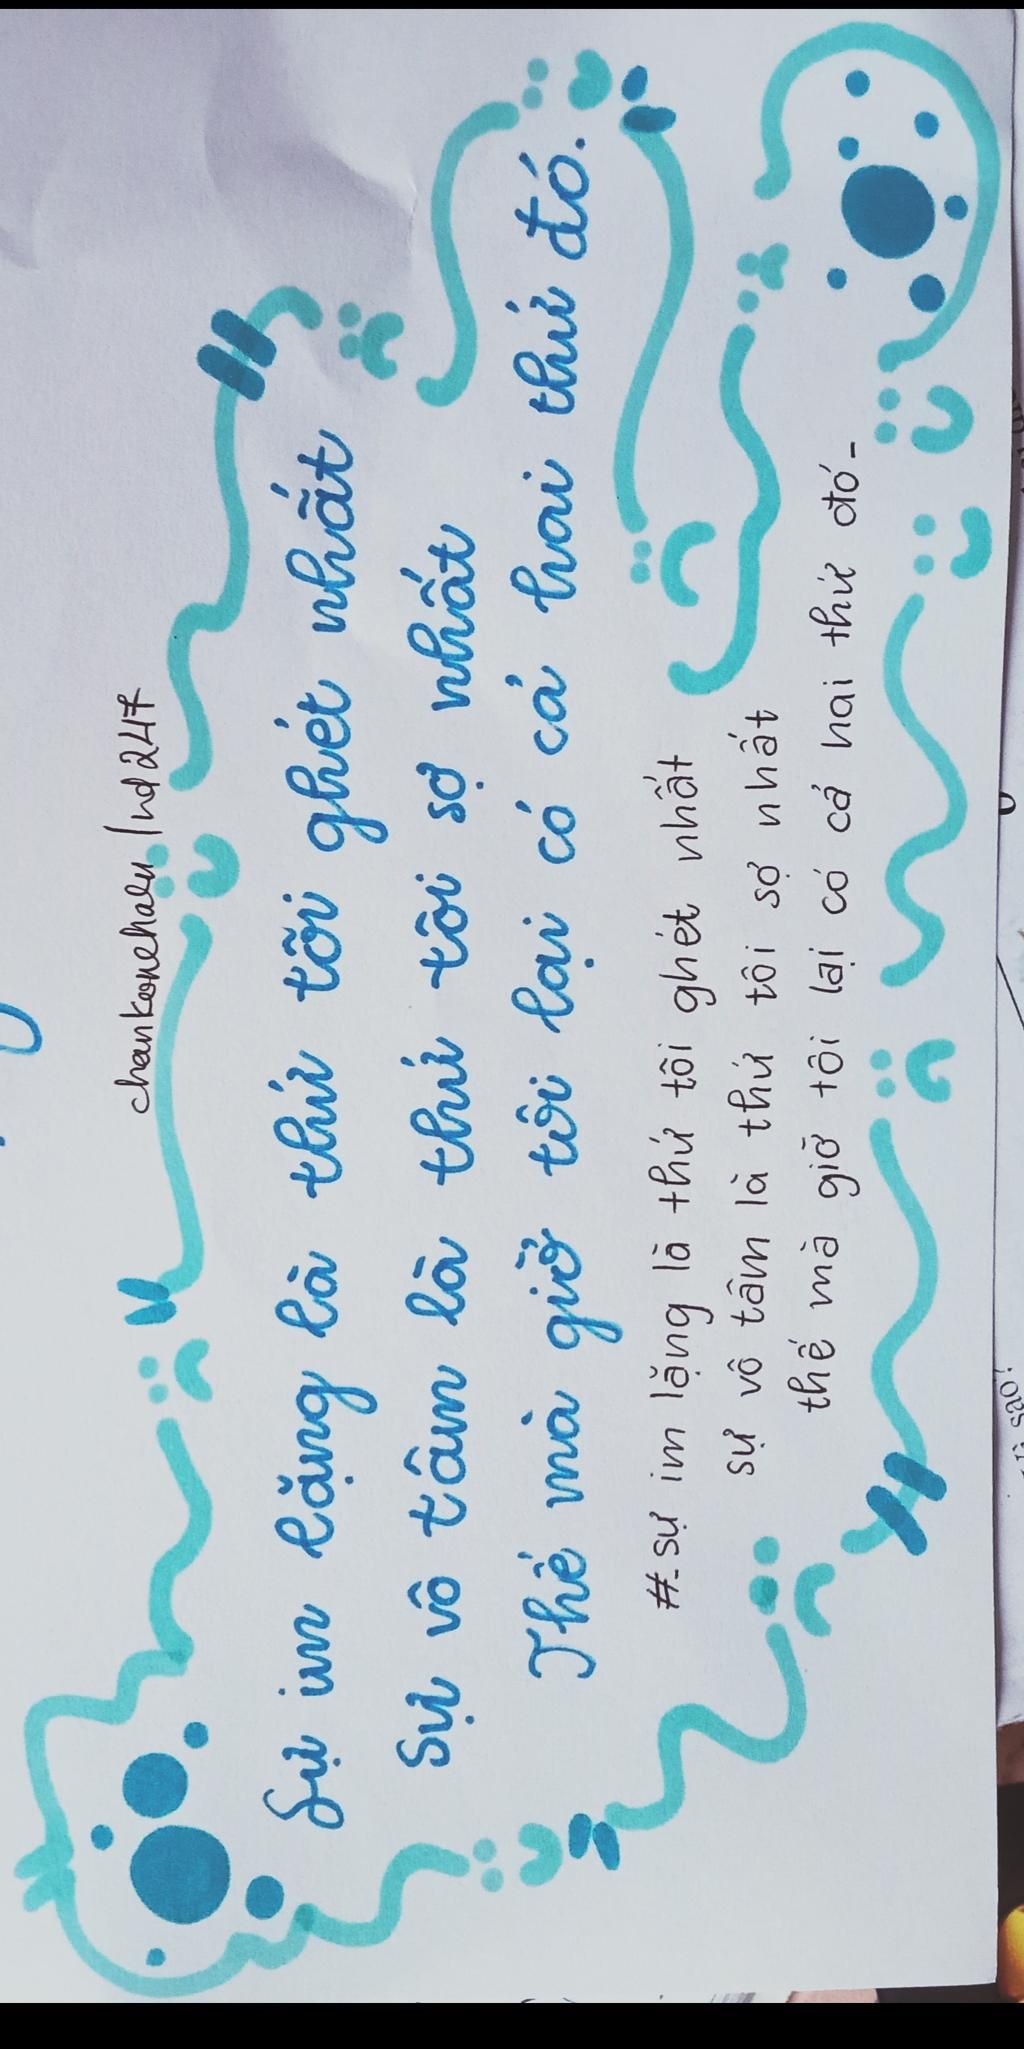 chankonehaeu/nd247
Sự im lặng là thứ tôi ghét nhất
Sự vô tâm là thứ tôi sợ nhất
Thế mà giờ tôi lại có cả hai thứ đó.
#-sự im lặng là thứ tôi ghét nhất
sự vô tâm là thứ tôi sợ nhất
thế mà giờ tôi lại có cả hai thứ đó-
sao!